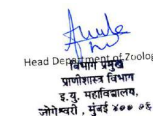 Head Department of Zoology
विभाग प्रमुख
प्राणीशास्त्र विभाग
इ. यु. महाविद्यालय,
जोगेश्वरी, मुंबई ४०० ०६